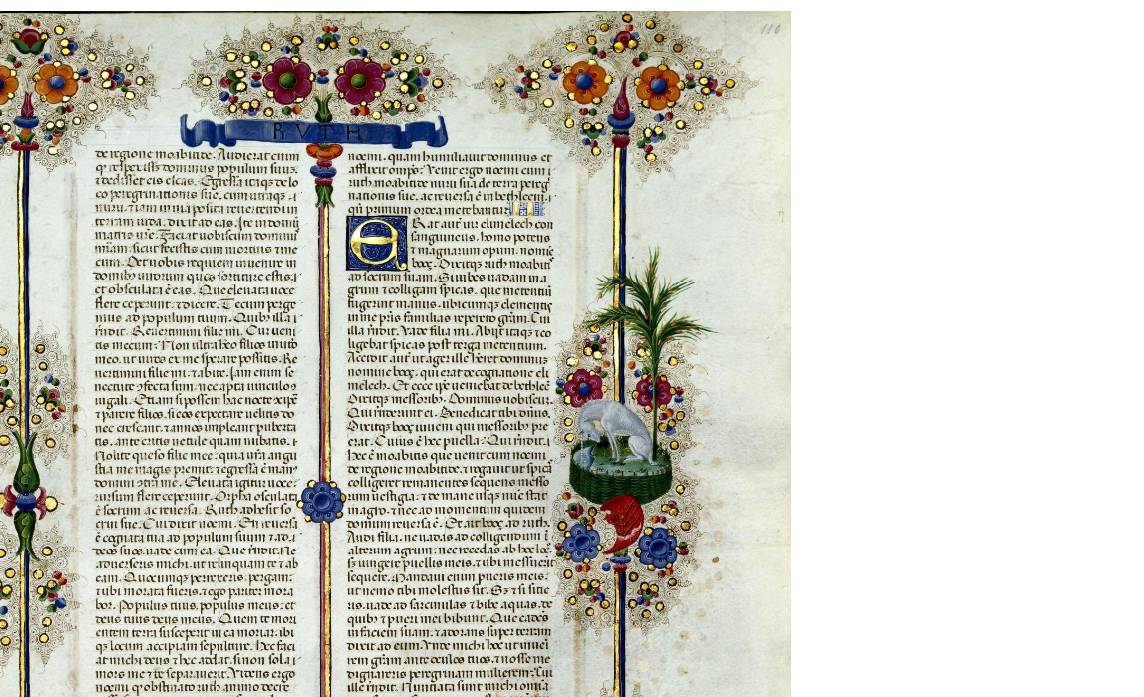 110
RVTH
de regione moabitide. Audierat enim
populum suum.
et dedisset eis escas. Egressa itaqz de lo
co peregrinationis sue. cum utraqz.
nuru. iam in uia posita reuertendi in
terram iuda. dixit ad eas. Ite in domum
matris
sicut fecistis cum mortuis
cum. Det nobis requiem inuenire in
domibz uirorum
et osculata est eas. Que eleuata uoce
flere ceperunt. et dicere. Tecum perge
mus ad populum tuum. Quibz illa
Reuertimini filie mi. Cur ueni
tis mecum. Non ultra habeo filios in utero
meo. ut uiros ex me sperare possitis. Re
uertimini filie mi. et abite. Iam enim se
nectute confecta sum. nec apta uinculo
iugali. Etiam si possem hac nocte
et parere filios. si eos expectare uelitis do
nec crescant. et annos impleant puberta
tis. ante eritis uetule quam nubatis.
Nolite queso filie mee. quia uestra angu
stia me magis premit.
domini contra me. Eleuata igitur uoce
rursum flere ceperunt. Orpha osculata
est socrum ac reuersa. Ruth adhesit so
crui sue. Cui dixit noemi. En reuersa
est cognata tua ad populum suum et ad
deos suos. uade cum ea. Que
aduerseris michi. ut relinquam te et ab
eam. Quocumqz perrexeris. pergam.
et ubi morata fueris. et ego pariter mora
bor. Populus tuus. populus meus. et
deus tuus deus meus. Quem te mori
entem terra susceperit in ea moriar. ibi
qz locum accipiam sepulture. Hec faci
at michi deus et hec addat. si non sola
mors me et te separauerit. Videns ergo
noemi
noemi. quam humiliauit dominus et
afflixit omnipotens. Venit ergo noemi cum
ruth moabitide nuru sua de terra pereg
nationis sue. ac reuersa est in bethleem.
quando primum ordea metebantur.
ERat autem uir elimelech con
sanguineus. homo potens
et magnarum opum. nomine
booz. Dixitqz ruth moabitis
ad socrum suam. Si iubes uadam in a
grum et colligam spicas. que metentium
fugerint manus. ubicumqz clementis
in me patris familias repperero gratiam. Cui
illa respondit. Vade filia mi. Abijt itaqz et co
ligebat spicas post terga metentium.
Accidit autem ut ager ille haberet dominum
nomine booz. qui erat de cognatione eli
melech. Et ecce ipse ueniebat de bethleem
Dixitqz messoribus. Dominus uobiscum.
Qui responderunt ei. Benedicat tibi dominus.
Dixitqz booz iuueni qui messoribus pre
erat. Cuius est hec puella. Qui respondit.
hec est moabitis que uenit cum noemi
de regione moabitide. et rogauit ut spicas
colligeret remanentes sequens messo
rum uestigia. et de mane usqz nunc stat
in agro. et nec ad momentum quidem
domum reuersa est. Et ait booz ad ruth.
Audi filia. ne uadas ad colligendum in
alterum agrum. nec recedas ab hoc loco
sed iungere puellis meis. et ubi messuerint
sequere. Mandaui enim pueris meis.
ut nemo tibi molestus sit. Sed et si sitie
ris. uade ad sarcinulas et bibe aquas. de
quibz et pueri mei bibunt. Que cadens
in faciem suam. et adorans super terram
dixit ad eum. Vnde michi hoc ut inueni
rem gratiam ante oculos tuos. et nosse me
dignareris peregrinam mulierem. Cui
ille respondit. Nuntiata sunt michi omnia